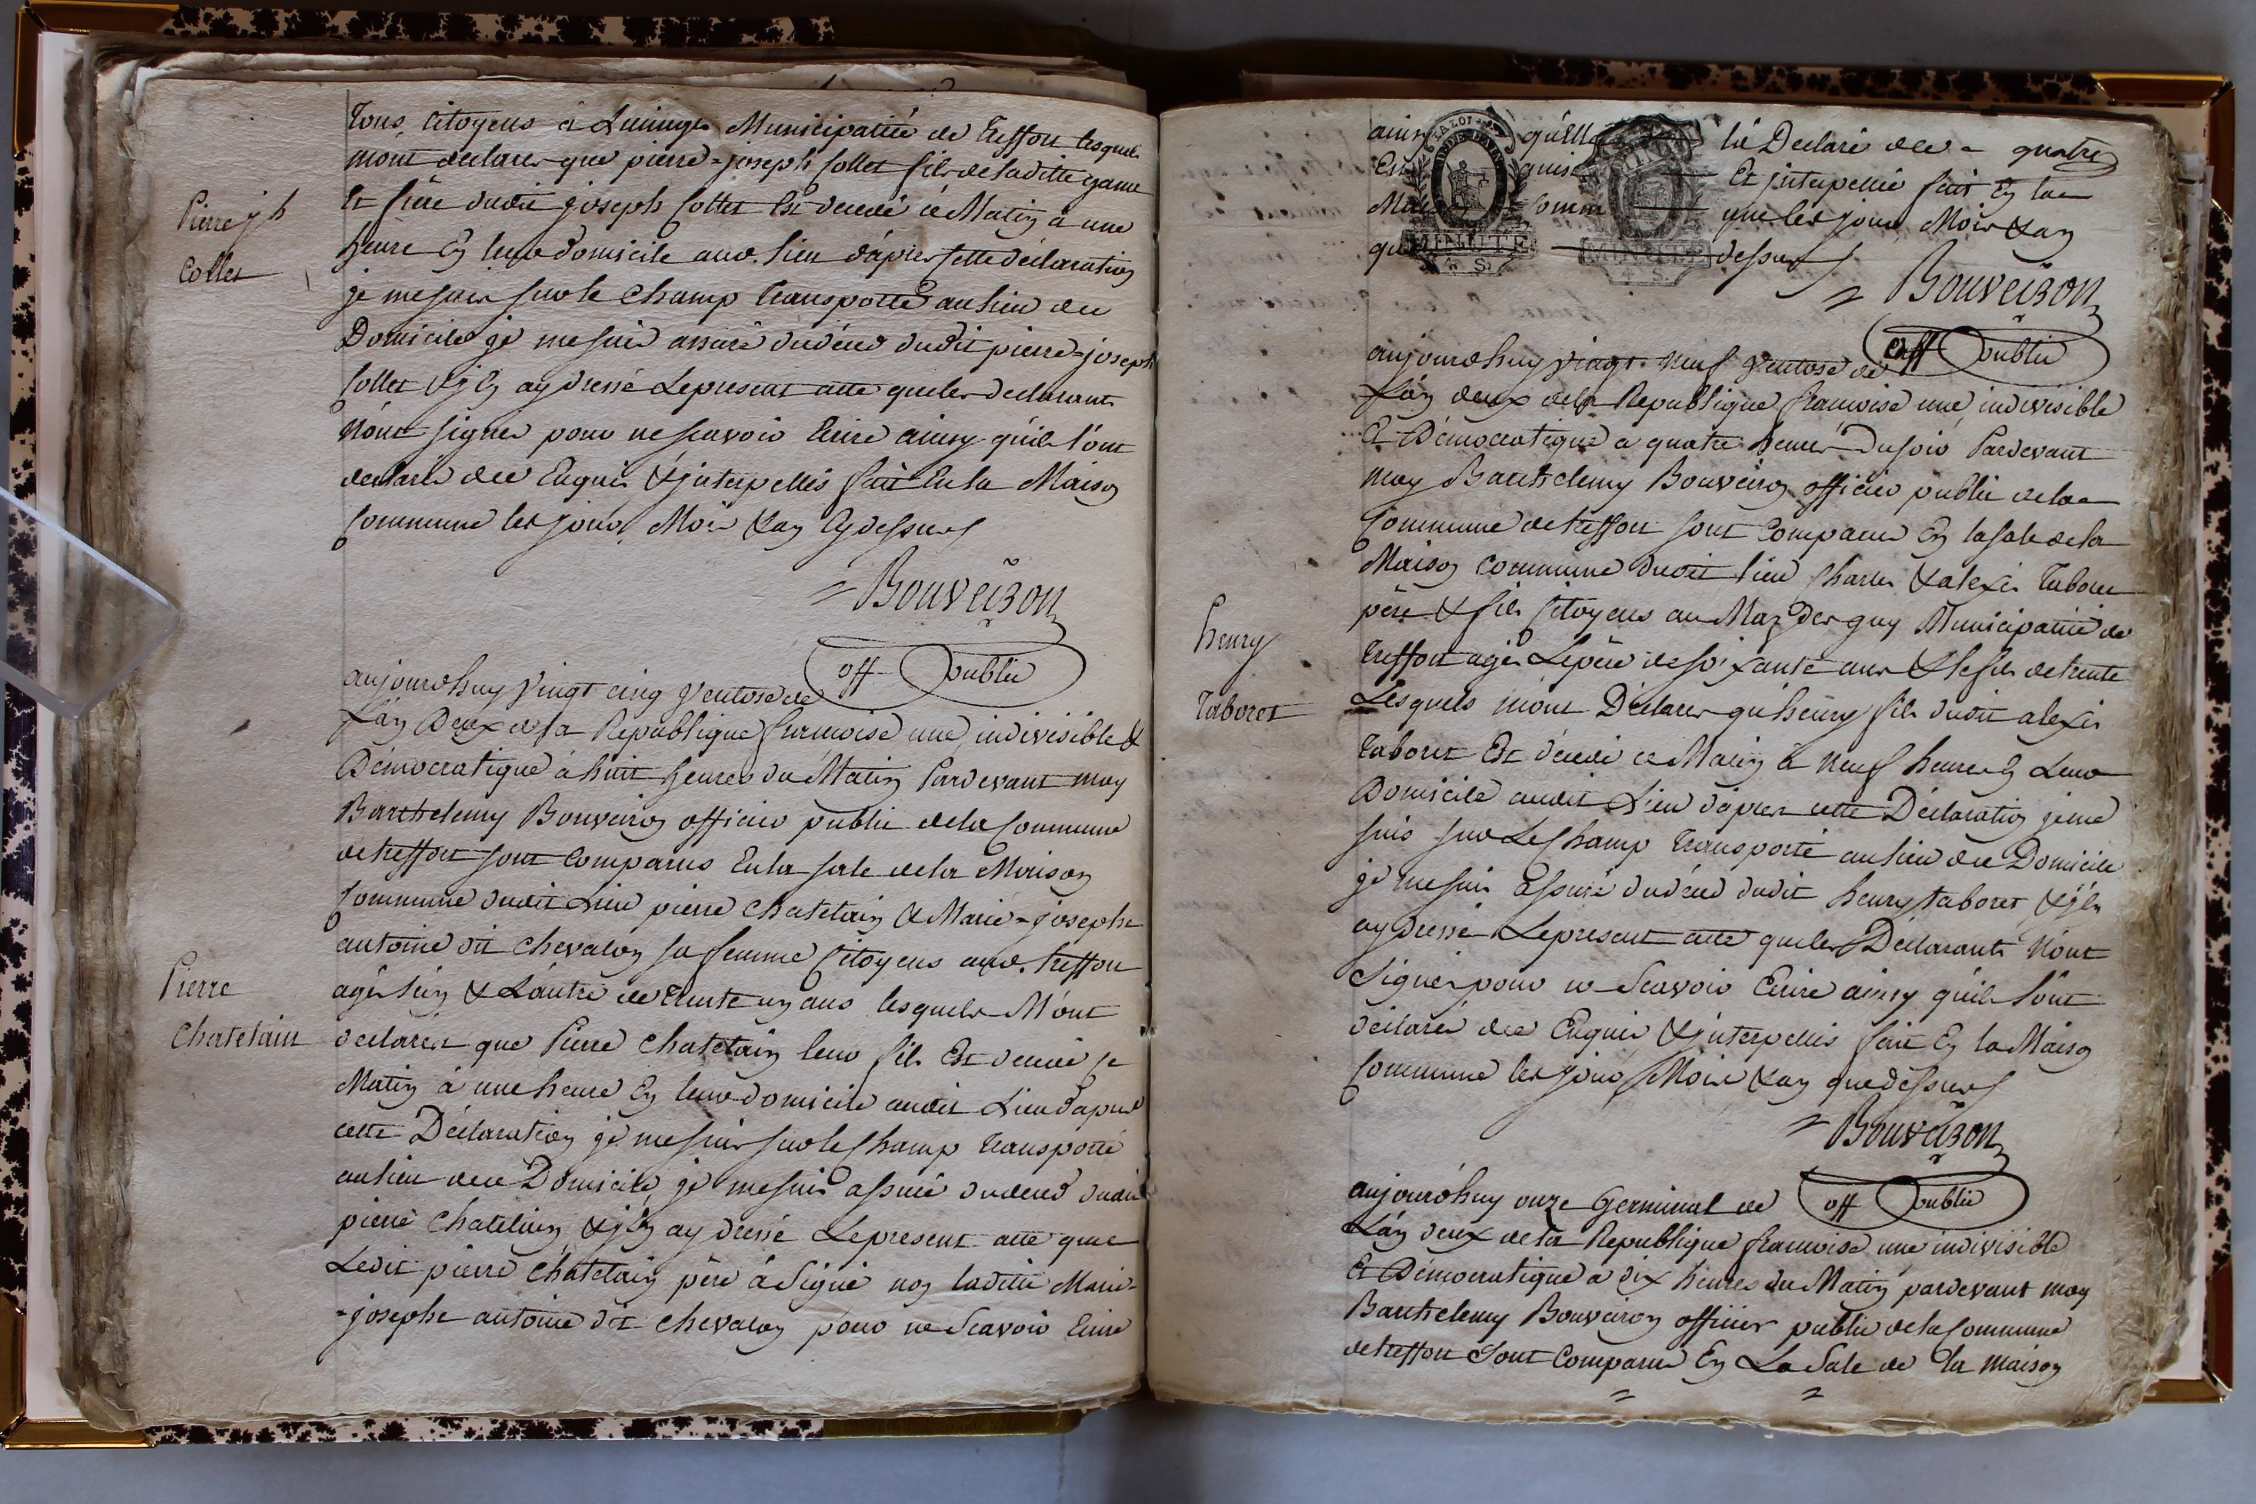 Tous Citoyens à Luinge Municipatité de treffort lesquels
mont declarer que pierre=joseph Collet fils de laditte game
Pierre jh
Collet
et frère dudit joseph Collet Est decedé ce Matin à une
heure En leur domicile aud. lieu d'apres Cette déclaration
je me suis sur le Champ transporté au lieu du
Domicile je me suis assuré du déces dudit pierre=joseph
Collet & j'en ay dressé Lepresent atte que les declarants
n'ont signer pour ne scavoir Ecrire ainsy qu'ils l'ont
declarés de ce Enquis & jnterpellés fait En la Maison
Commune les jour, Mois & an Cy dessus
= Bouveiron
off public
aujourdhuy Vingt cinq Ventose de
L'an Deux de la Republique francoise une indivisible &
Démocratique à huit heures du Matin Pardevant moy
Barthelemy Bouveiron officier public de la Commune
de treffort sont Comparus En la sale de la Maison
Commune dudit Lieu pierre Chatelain & Marie=josephe
antoine dit Chevalon sa femme Citoyens aud. treffort
Pierre
Chatelain
agés l'un & L'autre de trente un ans lesquels M'ont
declarés que Pierre Chatelain leur fils Est decedé ce
Matin à une heure En leur domicile audit Lieu d'apres
cette Déclaration je me suis sur le Champ transporté
au lieu du Domicile je me suis assuré du deces dudit
pierre Chatelain & j'en ay dressé Lepresent atte que
Ledit pierre Chatelain père à Signé non laditte Marie=
=josephe antoine dit Chevalon pour ne Scavoir Ecrire
ainsy qu'elle la Declaré de ce quatre
Enquise Et jnterpellée fait En la
Maison Commune les jour Mois & an
que dessus
LA LOI
MINUTE
4 S.
MINUTE
4 S.
= Bouveiron
off public
aujourdhuy vingt-neuf Ventose de
L'an deux de la Republique francoise une indivisible
Et Démocratique a quatre heures Du soir Pardevant
moy Barthelemy Bouveiron officier public de la
Commune de treffort sont Comparus En la sale de la
Maison Commune dudit lieu Charles & alexis Taboret
père & fils Citoyens au Maz Des guy Municipatité de
henry
Taboret
treffort agés Lepère de soixante ans & le fils de trente
Lesquels m'ont Déclarer qu'henry fils dudit alexis
taboret Est décedé ce Matin à neuf heures En Leur
Domicile audit Lieu d'apres cette Déclaration je me
suis sur Le Champ transporté au lieu du Domicile
je me suis assuré du déces dudit henry taboret & j'en
ay dressé Lepresent atte que les Déclarants N'ont
Signer pour ne Scavoir Ecrire ainsy qu'ils l'ont
déclarés de ce Enquis & jnterpellés fait En la Maison
Commune les jour Mois & an que dessus
= Bouveiron
off public
aujourdhuy onze Germinal de
L'an deux de la Republique francoise une indivisible
Et Démocratique à dix heures du Matin pardevant moy
Barthelemy Bouveiron officier public de la Commune
de treffort Sont Comparus En La Sale de la maison